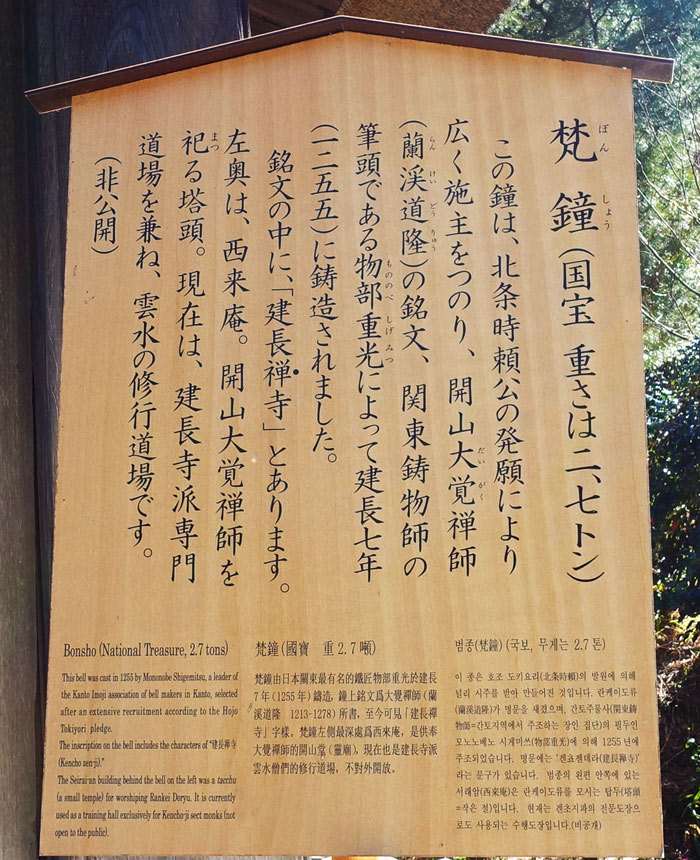 梵鐘(国宝 重さは二、七トン)
ぼんしょう
この鐘は、北条時頼公の発願により
広く施主をつのり、開山大覚禅師
だいがく
(蘭渓道隆)の銘文、関東鋳物師の
らんけいどうりゅう
筆頭である物部重光によって建長七年
もののべしげみつ
(一二五五)に鋳造されました。
銘文の中に、「建長禅寺」とあります。
左奥は、西来庵。開山大覚禅師を
祀る塔頭。現在は、建長寺派専門
まつ
道場を兼ね、雲水の修行道場です。
(非公開)
Bonsho (National Treasure, 2.7 tons)
This bell was cast in 1255 by Mononobe Shigemitsu, a leader of
the Kanto Imoji association of bell makers in Kanto, selected
after an extensive recruitment according to the Hojo
Tokiyori pledge.
The inscription on the bell includes the characters of "建長禅寺
(Kencho zen-ji)."
The Seirai-an building behind the bell on the left was a tacchu
(a small temple) for worshiping Rankei Doryu. It is currently
used as a training hall exclusively for Kencho-ji sect monks (not
open to the public).
梵鐘(國寶 重2.7噸)
梵鐘由日本關東最有名的鐵匠物部重光於建長
7年(1255年)鑄造,鐘上銘文爲大覺禪師(蘭
溪道隆 1213-1278)所書,至今可見「建長禪
寺」字樣。梵鐘左側最深處爲西來庵,是供奉
大覺禪師的開山堂(靈廟),現在也是建長寺派
雲水僧們的修行道場,不對外開放。
범종(梵鐘)(국보, 무게는 2.7톤)
이 종은 호조 도키요리(北条時頼)의 발원에 의해
널리 시주를 받아 만들어진 것입니다. 란케이도류
(蘭渓道隆)가 명문을 새겼으며, 간토주물사(関東鋳
物師=간토지역에서 주조하는 장인 집단)의 필두인
모노노베노 시게미쓰(物部重光)에 의해 1255년에
주조되었습니다. 명문에는 '겐쵸젠테라(建長禅寺)'
라는 문구가 있습니다. 범종의 왼편 안쪽에 있는
서래암(西来庵)은 란케이도류를 모시는 탑두(塔頭
=작은 절)입니다. 현재는 겐초지파의 전문도장으
로도 사용되는 수행도장입니다.(비공개)